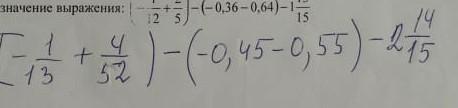 значение выражения: (-1/12+ /5)-(-0,36-0,64)-1 /15
[-1/13 + 4/52) - (-0,45-0,55) - 2 14/15